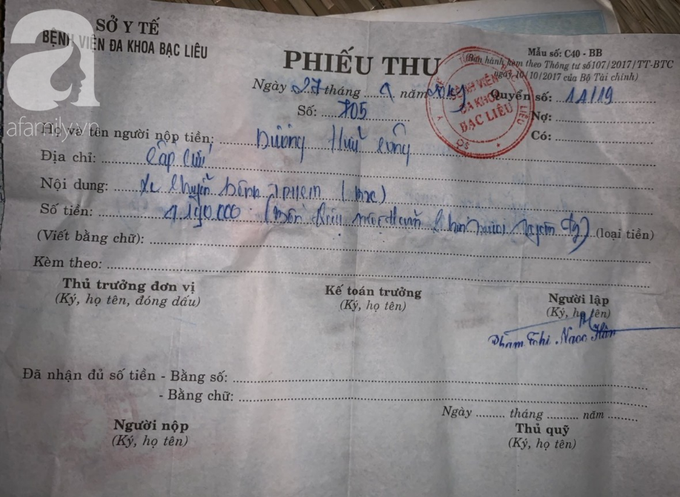 SỞ Y TẾ
BỆNH VIỆN ĐA KHOA BẠC LIÊU
afamily.vn
PHIẾU THU
Mẫu số: C40 - BB
(Ban hành kèm theo Thông tư số 107/2017/TT-BTC
ngày 10/10/2017 của Bộ Tài chính)
BỆNH VIỆN
ĐA KHOA
BẠC LIÊU
Ngày 27 tháng 9 năm
Quyển số: 11/19
Số: 705
Nợ:
Họ và tên người nộp tiền: Dương Hữu
Có:
Địa chỉ: Cấp Cứu
Nội dung: Xe chuyển bệnh
Số tiền: 4.190.000 (loại tiền)
(Viết bằng chữ):
Kèm theo:
Thủ trưởng đơn vị
(Ký, họ tên, đóng dấu)
Kế toán trưởng
(Ký, họ tên)
Người lập
(Ký, họ tên)
Phạm Thị Ngọc Hân
Đã nhận đủ số tiền - Bằng số:
- Bằng chữ:
Ngày ......... tháng ......... năm .........
Người nộp
(Ký, họ tên)
Thủ quỹ
(Ký, họ tên)